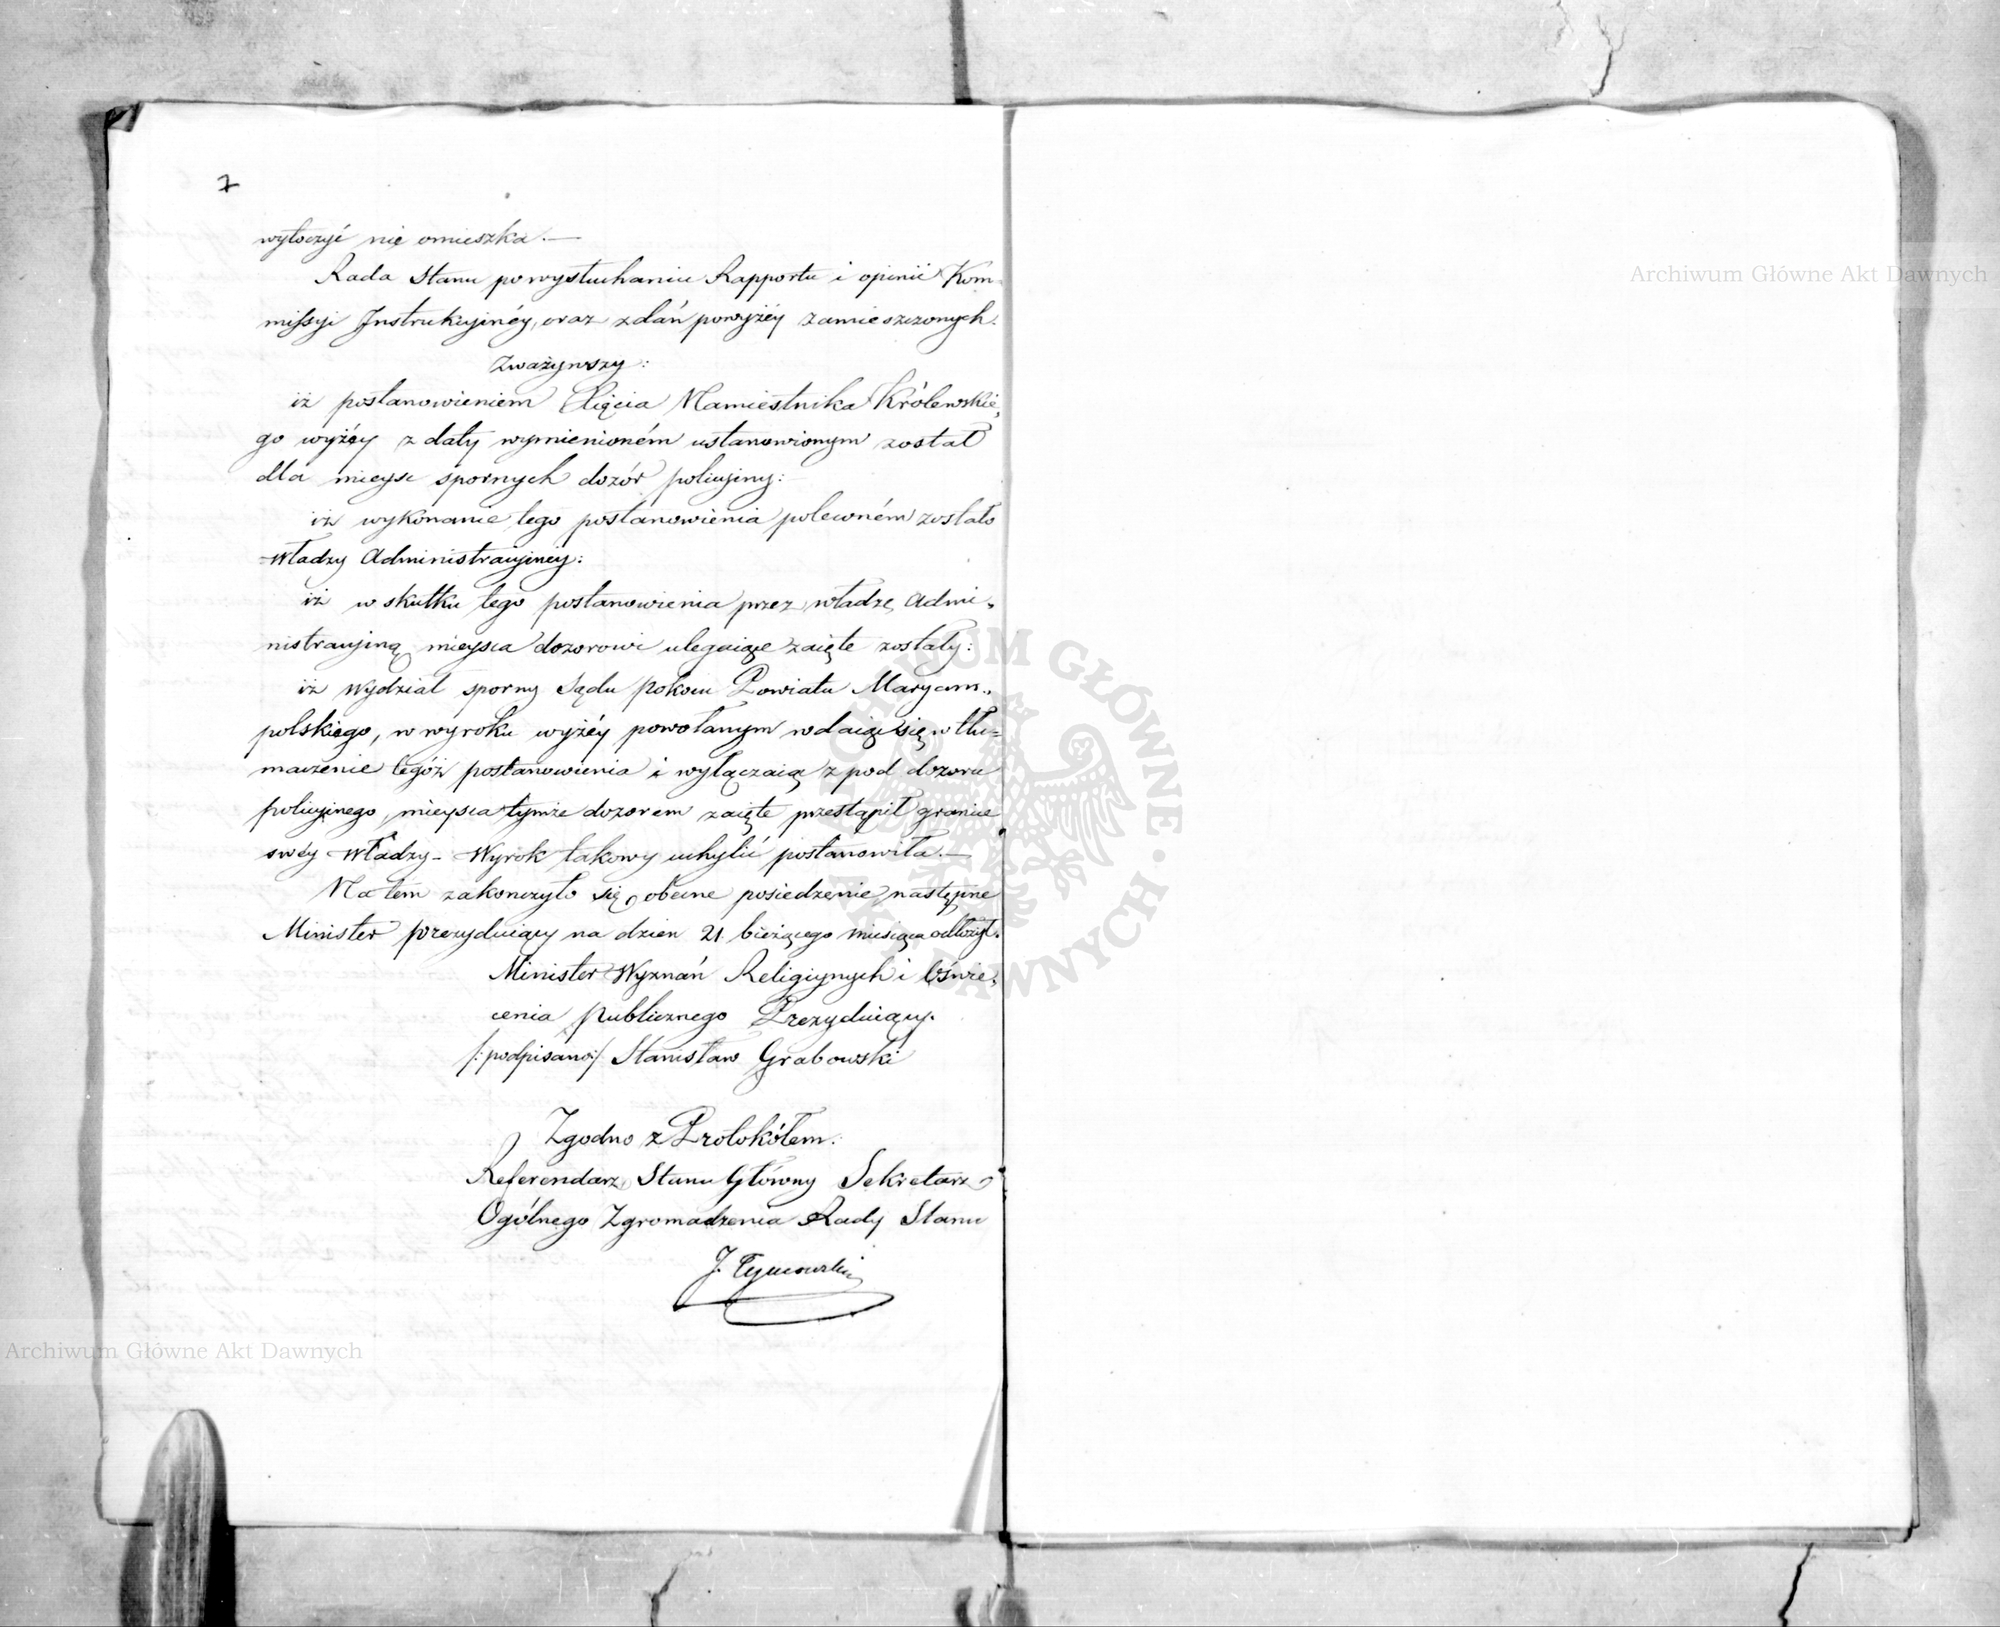 7
wyłoczyć nie omieszka.—
Rada Stanu po wysłuchaniu Rapportu i opinii Kom-
missyi Instrukcyinéy, oraz zdań powyżéy zamieszczonych.
Zważywszy:
iż postanowieniem Xięcia Namiestnika Królewskie,
go wyżéy z daty wymienioném ustanowionym został
dla mieysc spornych dozór policyiny:
iż wykonanie tego postanowienia poleconém zostało
Władzy Administracyinéy:
iż w skutku tego postanowienia przez władzę Admi,
nistracyiną mieysca dozorowi ulegaiące zaięte zostały:
iż Wydział sporny Sądu Pokoiu Powiatu Maryam,,
polskiego, w wyroku wyżéy powołanym wdaiąc się w tłu=
maczenie tegóż postanowienia i wyłączaiąc z pod dozoru
policyinego, mieysca tymże dozorem zaięte przestąpił granice
swéy Władzy – Wyrok takowy uchylić postanowiła.—
Na tem zakonczyło się obecne posiedzenie, następne
Minister prezyduiący na dzien 21 bieżącego miesiąca odłożył.
Minister Wyznań Religiynych i Oświe,
cenia Publicznego Prezyduiący.
/:podpisano:/ Stanisław Grabowski
Zgodno z Protokółem:
Referendarz Stanu Główny Sekretarz
Ogólnego Zgromadzenia Rady Stanu
J. Tymowski
Archiwum Główne Akt Dawnych
Archiwum Główne Akt Dawnych
ARCHIWUM GŁÓWNE AKT DAWNYCH